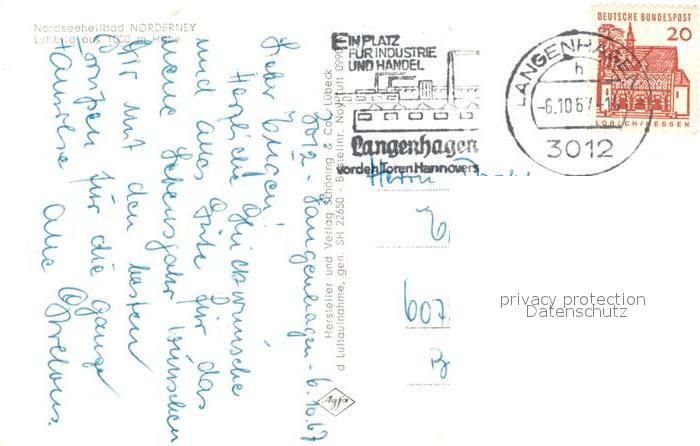 Nordseeheilbad NORDERNEY
Luftbild aus 1000 m Höhe
3012 - Langenhagen - 6.10.67
Lieber Eugen!
Herzliche Glückwünsche
und alles Gute für das
neue Lebensjahr wünschen
wir mit den besten
Grüßen für die ganze
Familie
alle
Hersteller und Verlag Schöning & Co., Lübeck
d Luftaufnahme, gen. SH 22650 - Bestellnr. Nor
Agfa
EIN PLATZ
FÜR INDUSTRIE
UND HANDEL
Langenhagen
vor den Toren Hannovers
LANGENHAGEN
h
-6.10.67-18
3012
DEUTSCHE BUNDESPOST
20
LORSCH/HESSEN
Herrn
607
privacy protection
Datenschutz